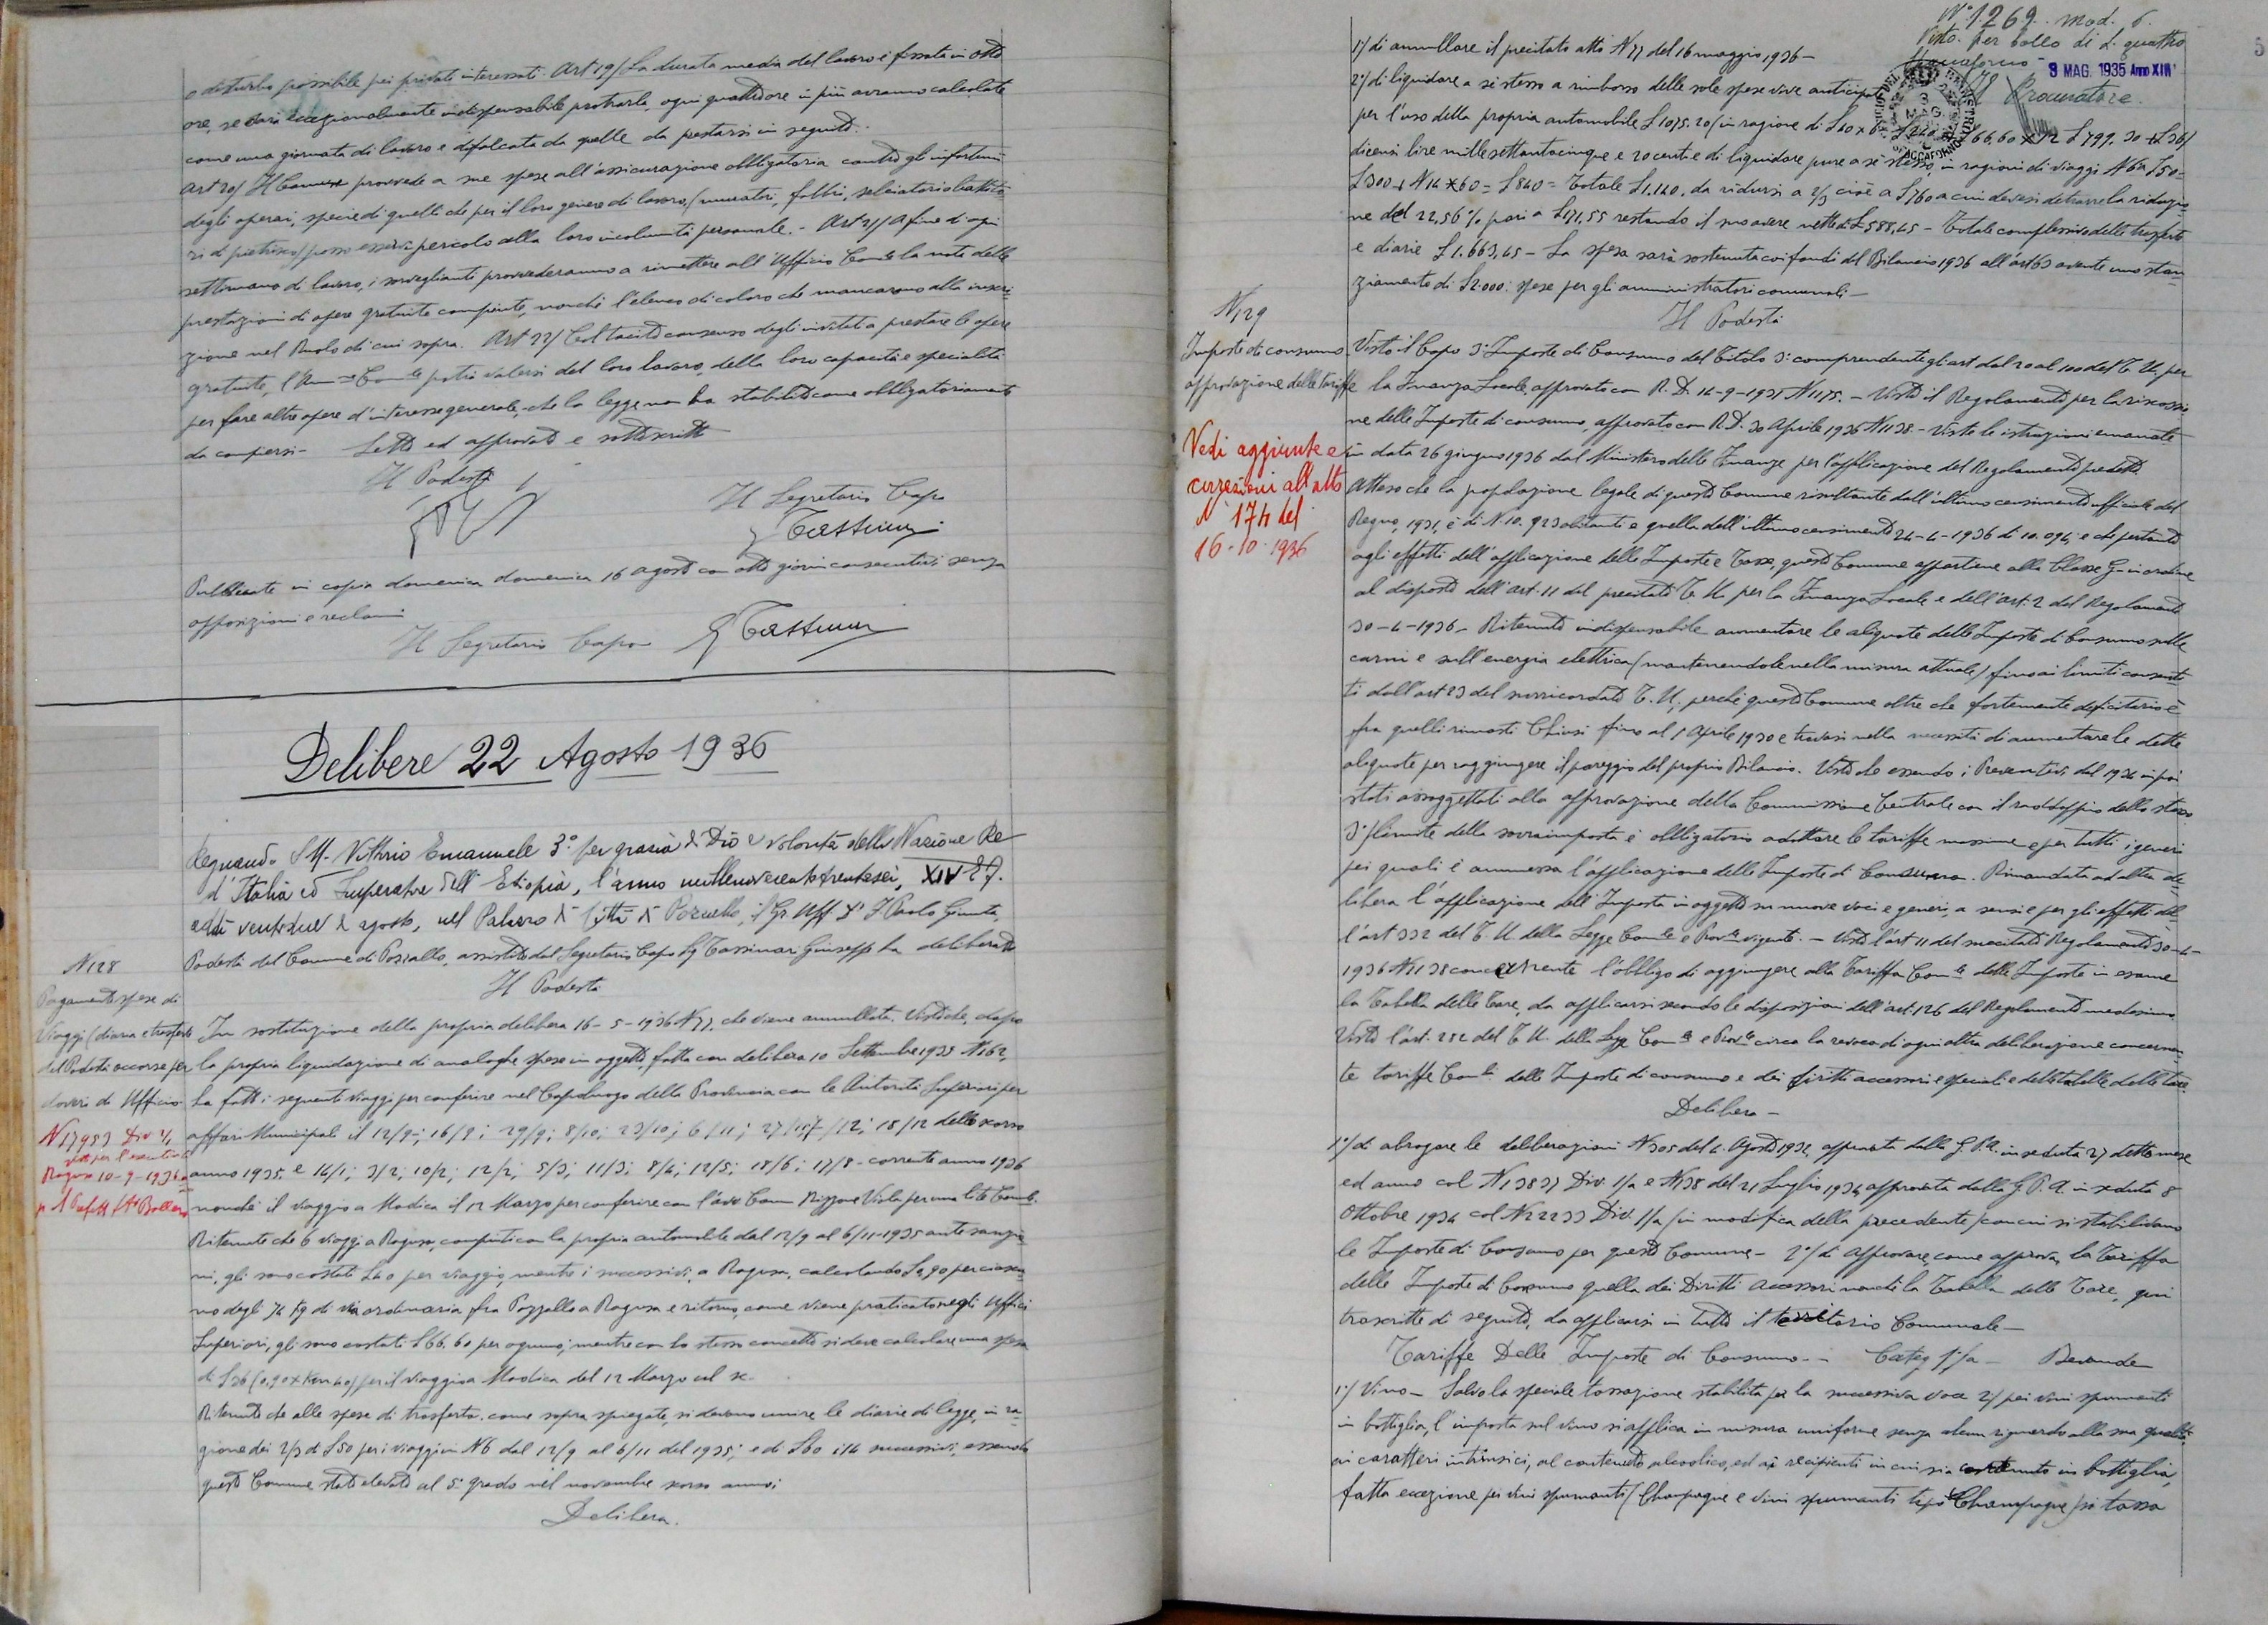 o disturbo possibile pei privati interessati. Art 19/ La durata media del lavoro è fissata in otto
ore, se sarà eccezionalmente indispensabile protrarla, ogni quattro ore in più avranno calcolate
come una giornata di lavoro e difalcata da quelle da prestarsi in seguito.
Art 20/ Il Comune provvede a sue spese all'assicurazione obbligatoria contro gli infortuni
degli operai, specie di quelli che per il loro genere di lavoro, (muratori, fabbri, selciatori
di pietrisco) posso esservi pericolo alla loro incolumità personale. - Art 21/ A fine di ogni
settimana di lavoro, i sorveglianti provvederanno a rimettere all'Ufficio Com.le la nota delle
prestazioni di opere gratuite compiute, nonchè l'elenco di coloro che mancarono alla inscri=
zione nel Ruolo di cui sopra. Art 22/ Col tacito consenso degli invitati a prestare le opere
gratuite, l'Amm.ne Com.le potrà valersi del loro lavoro, della loro capacità e specialità
per fare altre opere d'interesse generale, che la legge non ha stabilito come obbligatoriamente
da compiersi - Letto ed approvato e sottoscritto
Il Podestà
Il Segretario Capo
GTassinari
Pubblicata in copia domenica domenica 16 agosto con otto giorni consecutivi senza
opposizioni e reclami
Il Segretario Capo GTassinari
Delibere 22 Agosto 1936
Regnando S. M. Vittorio Emanuele 3° per grazia di Dio e volontà della Nazione Re
d'Italia ed Imperatore dell'Etiopia, l'anno millenovecentotrentasei, XIV E.F.
addì ventidue di agosto, nel Palazzo di Città di Pozzallo, il Gr. Uff. Paolo Giunta,
Podestà del Comune di Pozzallo, assistito dal Segretario Capo Sig Tassinari Giuseppe ha deliberato
N 128
Pagamento spese di
Viaggi (diaria e trasferte
del Podestà occorse per
doveri di Ufficio
N 17983 Div 2/
visto per l'esecutività
Ragusa 10-9-1936
p Il Prefetto
Il Podestà
In sostituzione della propria delibera 16-5-1936 N 77, che viene annullata. Visto che, dopo
la propria liquidazione di analoghe spese in oggetto, fatta con delibera 10 Settembre 1935 N 162,
ha fatto i seguenti viaggi per conferire nel Capoluogo della Provincia con le Autorità Superiori per
affari Municipali il 12/9; 16/9; 29/9; 8/10; 23/10; 6/11; 27/ /12; 18/12 dello scorso
anno 1935, e 14/1; 3/2; 10/2; 12/2; 5/3; 11/3; 8/4; 12/5; 18/6; 17/8 - corrente anno 1936
nonchè il viaggio a Modica il 12 Marzo per conferire con l'avv Comm Rizzone Viola per una lite Com.le
Ritenuto che 6 viaggi a Ragusa, compiuti con la propria automobile dal 12/9 al 6/11-1935 ante sanzio=
ni, gli sono costati L 40 per viaggio, mentre i successivi, a Ragusa, calcolando L 0,90 per ciascu=
no degli 74 Kg di via ordinaria fra Pozzallo a Ragusa e ritorno, come viene praticato negli Uffici
Superiori, gli sono costati L 66.60 per ognuno; mentre con lo stesso concetto si deve calcolare una spesa
di L 36 (0,90 x Km 40) per il viaggio a Modica del 12 Marzo
Ritenuto che alle spese di trasferta, come sopra spiegate, si devono unire le diarie di legge, in ra=
gione dei 2/3 di L 50 per i viaggi in N 6 dal 12/9 al 6/11 del 1935; e di L 60 i 14 successivi, essendo
questo Comune stato elevato al 5° grado nel novembre scorso anno;
Delibera.
N° 1269. mod. 6.
Visto per bollo di L. quattro
9 MAG. 1935 Anno XIII
Il Procuratore.
1°/ di annullare il precitato atto N 77 del 16 maggio 1936 -
2°/ di liquidare a se stesso a rimborso delle sole spese vive anticipate
per l'uso della propria automobile L 1075.20 (in ragione di L 40 x 6 = L 240 66,60 x 12 L 799.20 + L 36)
dicensi lire mille settantacinque e 20 cent e di liquidare pure a sè stesso, in ragioni di viaggi N 6 a L 50=
L 300 + N 14 x 60 = L 840 = Totale L 1.140, da ridursi a 2/3 cioè a L 760 a cui devesi detrarre la riduzio=
ne del 22,56 % pari a L 171,55 restando il suo avere netto di L 588,45 - Totale complessivo delle trasferte
e diarie L 1.663,65 - La spesa sarà sostenuta coi fondi del Bilancio 1936 all'art 63 avente uno stan=
ziamento di L 2.000: spese per gli amministratori comunali -
Il Podestà
N 129
Imposte di consumo
approvazione delle tariffe
Vedi aggiunte e
correzioni all'atto
N° 174 del
16-10-1936
Visto il Capo 3° Imposte di Consumo del Titolo 3° comprendente gli art dal 20 al 100 del T. U. per
la Finanza Locale, approvato con R. D. 14-9-1931 N 1175. - Visto il Regolamento per la riscossio
ne delle Imposte di consumo, approvato con R.D. 30 Aprile 1936 N 1138. - Viste le istruzioni emanate
in data 26 giugno 1936 dal Ministero delle Finanze per l'applicazione del Regolamento predetto.
Atteso che la popolazione legale di questo Comune risultante dall'ultimo censimento ufficiale del
Regno, 1931, è di N. 10.923 abitanti e quella dell'ultimo censimento 21-4-1936 di 10.094; e che pertanto
agli effetti dell'applicazione delle Imposte e Tasse, questo Comune appartiene alla Classe G- in ordine
al disposto dell'art. 11 del precitato T. U. per la Finanza Locale e dell'art. 2 del Regolamento
30-4-1936 - Ritenuto indispensabile aumentare le aliquote delle Imposte di Consumo sulle
carni e sull'energia elettrica (mantenendole nella misura attuale) fino ai limiti consenti
ti dall'art 23 del surricordato T. U., perchè questo Comune oltre che fortemente deficitario è
fra quelli rimasti Chiusi fino al 1 Aprile 1930 e trovasi nella necessità di aumentare le dette
aliquote per raggiungere il pareggio del proprio Bilancio. Visto che essendo i Preventivi dal 1934 in poi
stati assoggettati alla approvazione della Commissione Centrale con il raddoppio dello stesso
3°/ limite della sovraimposta è obbligatorio adottare le tariffe massime e per tutti i generi
pei quali è ammessa l'applicazione delle Imposte di Consumo. Rimandata ad altra de=
libera l'applicazione dell'Imposta in oggetto su nuove voci e generi, a sensi e per gli effetti del
l'art 332 del T. U. della Legge Com.le e Prov.le vigente. - Visto l'art 11 del succitato Regolamento 30-4-
1936 N 1138 concernente l'obbligo di aggiungere alla Tariffa Com.le delle Imposte in esame
la Tabella delle Tare, da applicarsi secondo le disposizioni dell'art. 126 del Regolamento medesimo.
Visto l'art. 252 del T. U. della Legge Com.le e Prov.le circa la revoca di ogni altra deliberazione concernen
te tariffe Com.li delle Imposte di consumo e dei diritti accessori e speciali e delle tabelle delle tare.
Delibera -
1°/ di abrogare le deliberazioni N 305 del 4 Agosto 1932, approvata dalla G. P. A. in seduta 27 detto mese
ed anno col N 13837 Div. 1/a e N 138 del 21 Luglio 1934, approvata dalla G. P. A. in seduta 8
Ottobre 1934 col N 22233 Div. 1/a (in modifica della precedente) con cui si stabilivano
le Imposte di Consumo per questo Comune - 2°/ di approvare, come approva, la Tariffa
delle Imposte di Consumo quella dei Diritti Accessori nonchè la Tabella delle Tare, qui
trascritte di seguito, da applicarsi in tutto il territorio Comunale -
Tariffe Delle Imposte di Consumo - Categ 1/a - Bevande
1°/ Vino - Salvo la speciale tassazione stabilita per la successiva voce 2) pei vini spumanti
in bottiglia, l'imposta sul vino si applica in misura uniforme senza alcun riguardo alla sua qualità
ai caratteri intrinsici, al contenuto alcoolico, ed ai recipienti in cui sia contenuto in bottiglia,
fatta eccezione pei vini spumanti (Champagne e vini spumanti tipo Champagne) si tassa